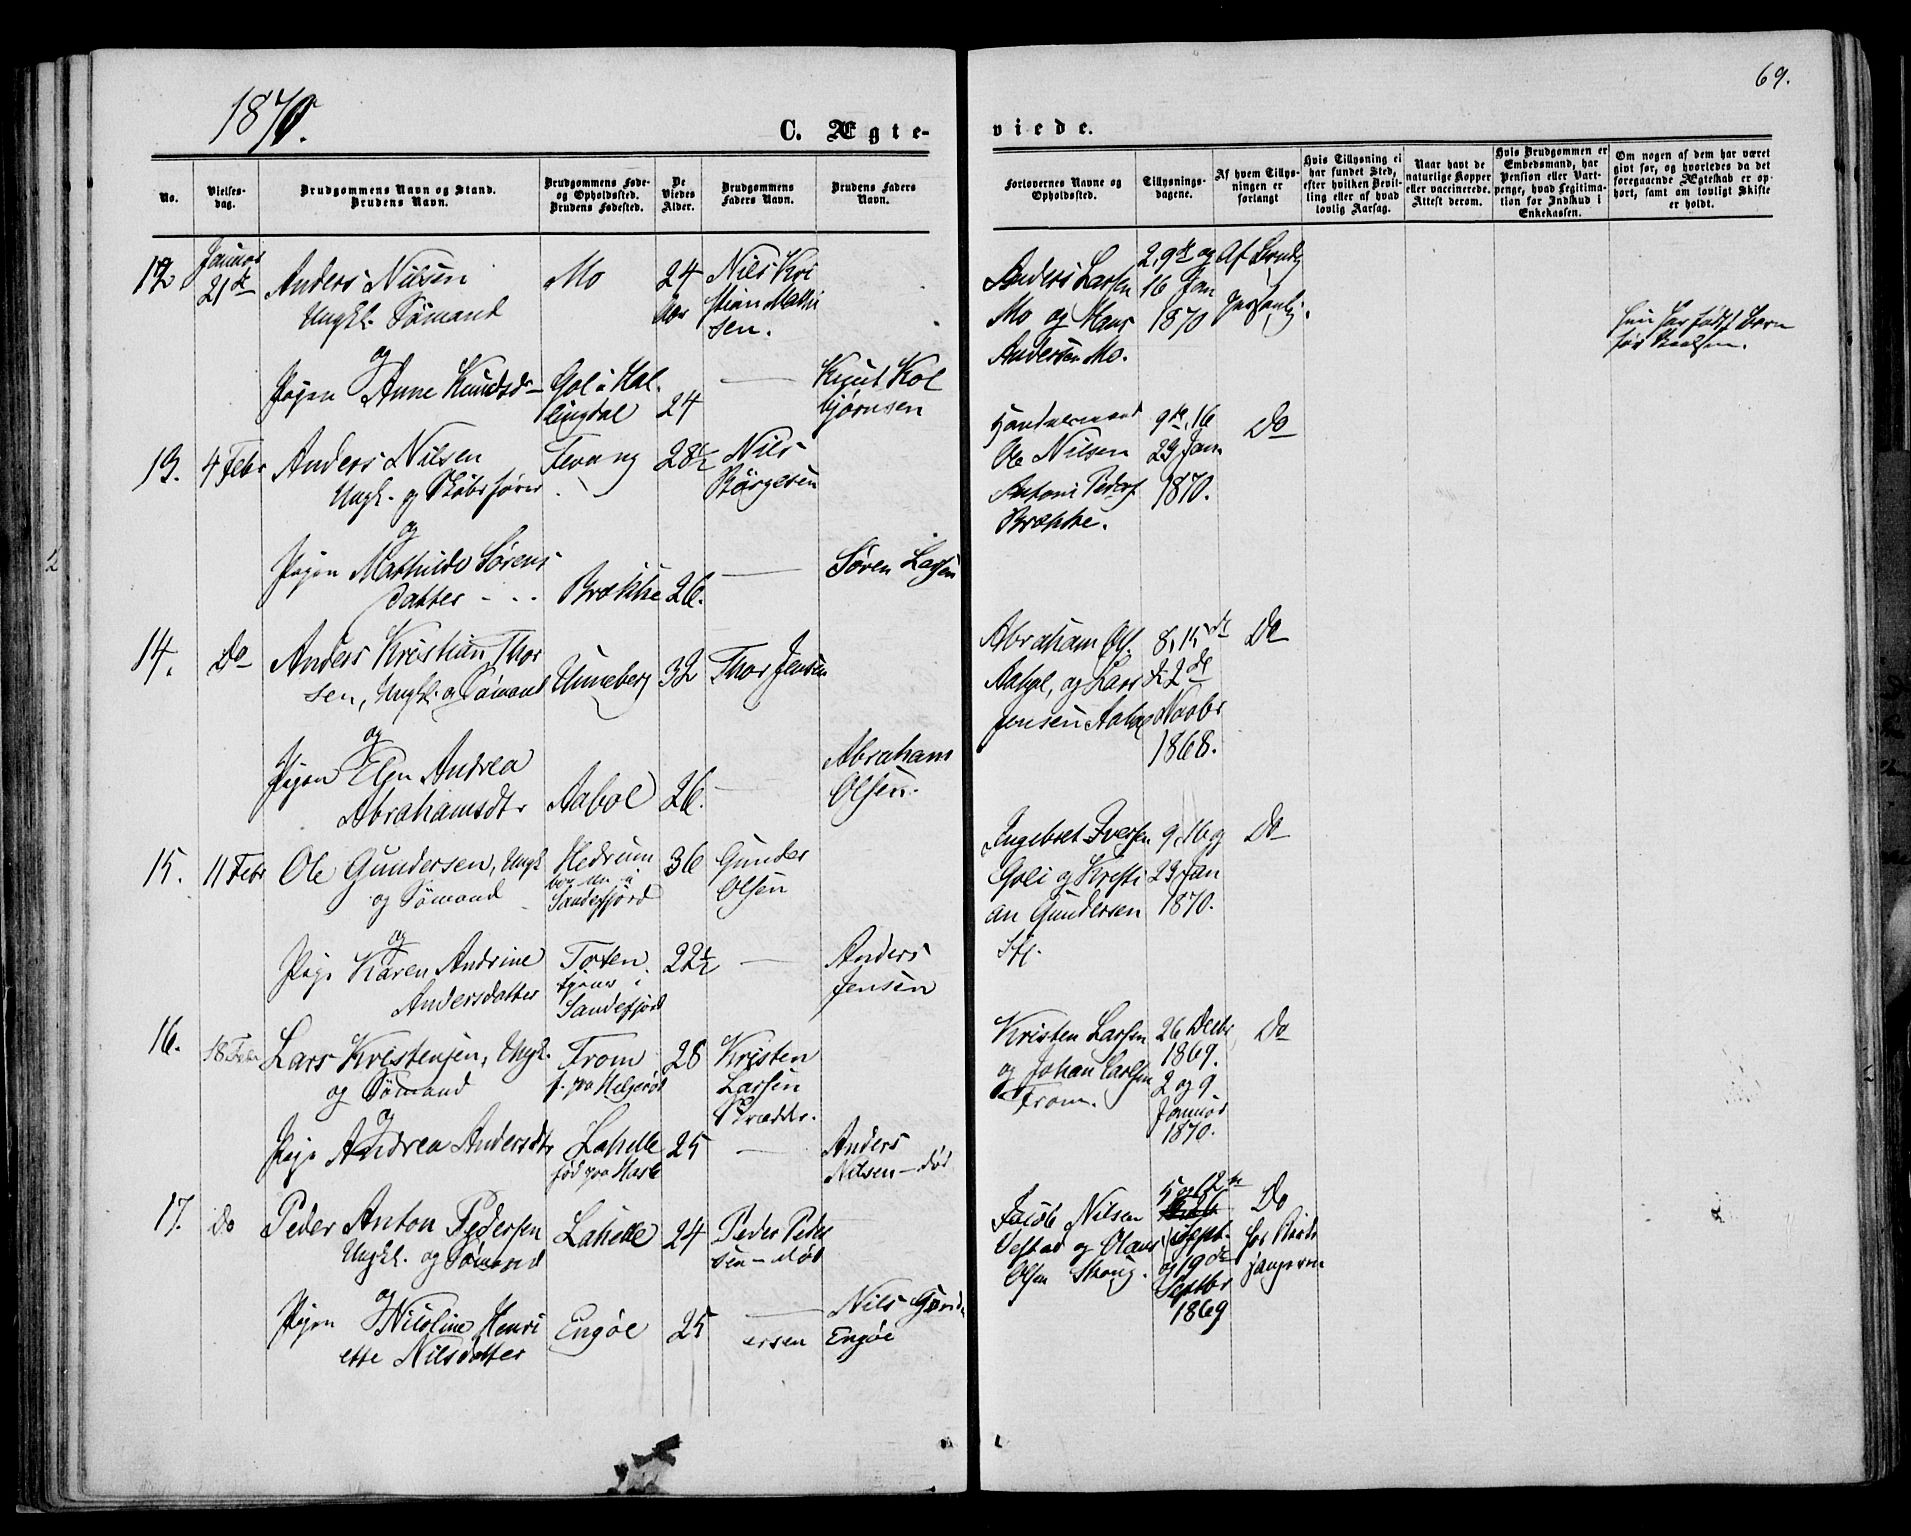 1870.
69.
C. Ægte-
viede.
No.
Vielses-
dag.
Brudgommens Navn og Stand.
Brudens Navn.
Brudgommens Føde-
og Opholdssted.
Brudens Fødested.
De
Viedes
Alder.
Brudgommens
Faders Navn.
Brudens Faders
Navn.
Forlovernes Navne og
Opholdssted.
Tillysnings-
dagene.
Af hvem Tillys-
ningen er
forlangt
Hvis Tillysning ei
har fundet Sted,
efter hvilken Bevil-
ling eller af hvad
lovlig Aarsag.
Naar havt de
naturlige Kopper
eller vaccinerede.
Attest derom.
Hvis Brudgommen er
Embedsmand, har
Pension eller Vart-
penge, hvad Legitima-
tion for Indskud i
Enkekassen.
Om nogen af dem har været
gift før, og hvorledes da det
foregaaende Ægteskab er op-
hørt, samt om lovligt Skifte
er holdt.
12
Januar
21de
Anders Nilsen
Ungk. Sømand
og
Pigen Anne Knudsdr
Mo
Gol i Hal
lingdal
24
Aar
24
Nils Kri
stian Mathi
sen.
Knut Kol
bjørnsen
Anders Larsen
Mo og Hans
Andersen Mo.
2, 9de og
16 Jan
1870
Af Brudg
personlig.
Hun har født Barn
før
13.
4 Febr
Anders Nilsen
Ungk. og Skibsfører
og
Pigen Mathilde Sørens
datter
Tevang
Brække
28½
26.
Nils
Børgesen
Søren Larsen
Ole Nilsen
Anton Peders
Brække.
9de, 16
23 Jan
1870.
Do
14.
Do
Anders Kristian Thor
sen, Ungk. og Sømand
og
Pigen Elen Andrea
Abrahamsdtr
Unneberg
Aabol
32
26.
Thor Jensen
Abraham
Olsen.
Abraham Ols.
Aabol, og Lars
Jensen Aabol
8, 15de
& 22de
Novbr
1868.
Do
15.
11 Febr
Ole Gundersen, Ungk
og Sømand
og
Pige Karen Andrine
Andersdatter
Hedrum
bor nu i
Sandefjord
Toten
tjener i
Sandefjord
36
22½
Gunder
Olsen
Anders
Jensen
Ingebret Iversen
Goli og Kristi
an Gundersen
Sfj.
9, 16 og
23 Jan
1870.
Do
16.
18 Febr
Lars Kristensen, Ungk.
og Sømand
og
Pige Andrea Andersdtr
From
f. paa Helgerød
Lahelle
fød paa Hasle
28
25
Kristen
Larsen
Skrædder.
Anders
Nilsen - død
Kristen Larsen
og Johan Carlsen
From.
26 Decbr
1869.
2 og 9
Januar
1870.
Do
17.
Do
Peder Anton Pedersen
Ungk. og Sømand
og
Pigen Nicoline Henri
ette Nilsdatter
Lahelle
Engøe
24
25
Peder Peder
sen - død
Nils Gund
ersen Engøe
Jacob Nilsen
Vestad og Olaus
Olsen Skoug.
5 og 12te
Sept.
og 19de
Septbr
1869
Do
for Kirke
sangeren